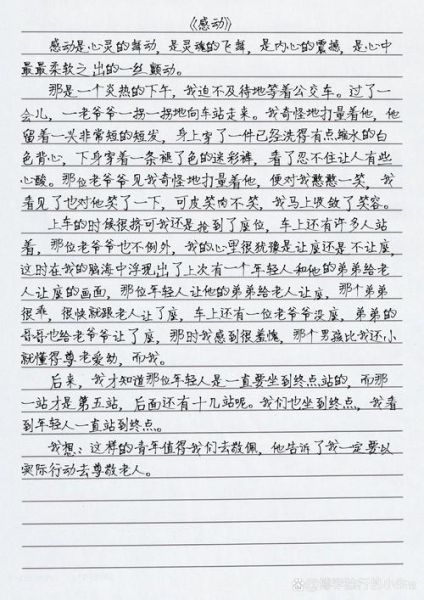 《感动》
感动是心灵的舞动，是灵魂的飞舞，是内心的震撼，是心中
最最柔软之出的一丝颤动。
那是一个炎热的下午，我迫不及待地等着公交车。过了一
会儿，一老爷爷一拐一拐地向车站走来。我奇怪地打量着他，他
留着一头非常短的短发，身上穿了一件已经洗得有点缩水的白
色背心，下身穿着一条褪了色的迷彩裤，看了忍不住让人有些
心酸。那位老爷爷见我奇怪地打量着他，便对我憨憨一笑，我
看见了也对他笑了一下，可皮笑肉不笑，我马上收敛了笑容。
上车的时候很挤可我还是抢到了座位，车上还有许多人站
着，那位老爷爷也不例外，我的心里很犹豫是让座还是不让座，
这时在我的脑海中浮现出了上次有一个年轻人和他的弟弟给老
人让座的画面，那位年轻人让他的弟弟给老人让座，那个弟弟
很乖，很快就跟老人让了座，车上还有一位老爷爷没座，弟弟的
哥哥也给老爷爷让了座，那时我感到很羞愧，那个男孩比我还小
就懂得尊老爱幼，而我。
后来，我才知道那位年轻人是一直要坐到终点站的，而那
一站才是第五站，后面还有十几站呢。我们也坐到终点，我看
到年轻人一直站到终点。
我想：这样的青年值得我们去敬佩，他告诉了我一定要以
实际行动去尊敬老人。